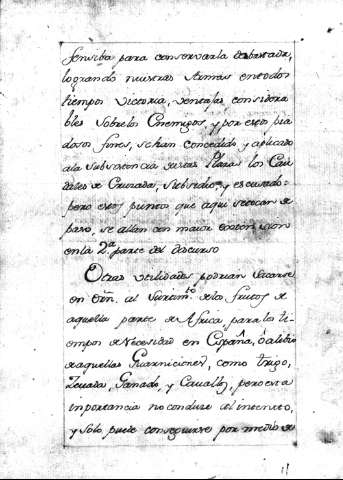 sensiba para conservarla
logrando nuestras Armas en todos
tiempos victoria, ventajas considera
bles sobre los Enemigos, y por estos pia
dosos fines, se han concedido, y aplicado
a la Subsistencia de estas Plazas los Cau
dales de Cruzada, Subsidio, y escusado:
pero estos puntos que aqui se tocan de
paso, se allan con maior extension
en la 2.ª parte del discurso
Otras utilidades podrian sacarse
en orñ. al Surtim.to de los frutos de
aquella parte de Africa para los ti-
empos de Necesidad en España, ó alibio
de aquellas Guarniciones, como trigo,
Zevada, Ganado, y Cavallos, pero esta
importancia no conduce al intento,
y solo puede conseguirse por medio de